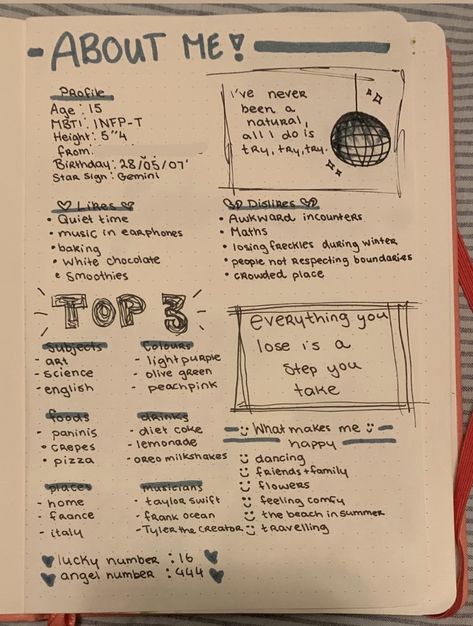 ABOUT ME!
Profile
Age : 15
MBTI : INFP-T
Height: 5"4
from:
Birthday: 28/05/07'
Star Sign: Gemini
i've never
been a
natural,
all I do is
try, try, try.
Likes
• Quiet time
• music in earphones
• baking
• white chocolate
• Smoothies
Dislikes
• Awkward incounters
• Maths
• losing freckles during winter
• people not respecting boundaries
• crowded place
TOP 3
Subjects
- art
- science
- english
Colours
- light purple
- olive green
- peach pink
everything you
lose is a
step you
take
foods
- paninis
• crepes
• pizza
drinks
- diet coke
- lemonade
- oreo milkshakes
What makes me
happy
dancing
friends + family
flowers
feeling comfy
the beach in summer
travelling
places
- home
- france
- italy
musicians
- taylor swift
- frank ocean
- Tyler the creator
lucky number : 16
angel number : 444